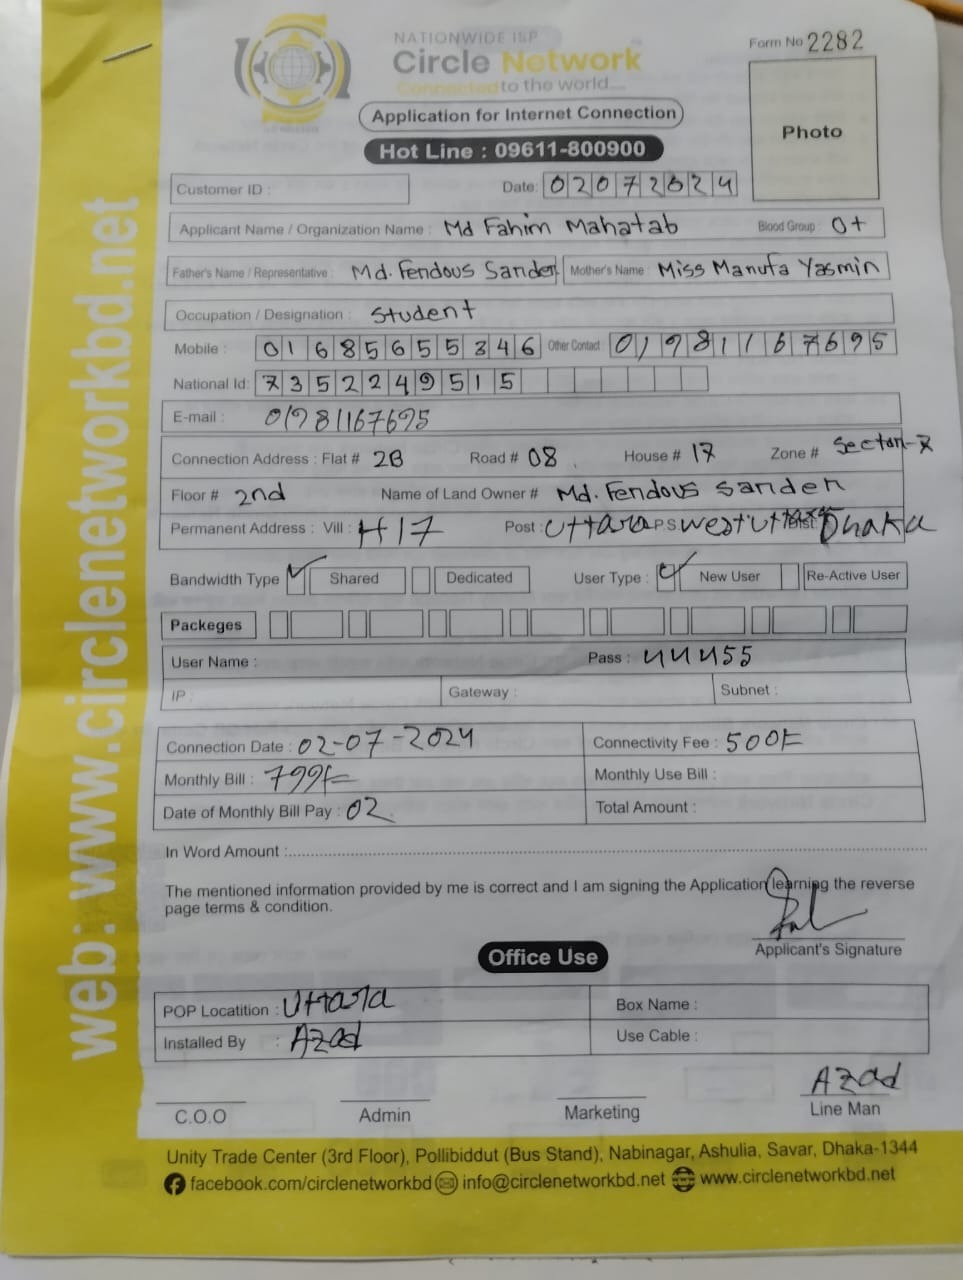 NATIONWIDE ISP
Circle Network
Connected to the world....
Form No 2282
Application for Internet Connection
Hot Line : 09611-800900
Photo
Customer ID :
Date: 02072024
Applicant Name / Organization Name : Md Fahim Mahatab Blood Group : O+
Father's Name / Representative : Md. Ferdous Sarder Mother's Name : Miss Manufa Yasmin
Occupation / Designation : Student
Mobile : 01685655346 Other Contact : 01981167695
National Id: 7352249515
E-mail : 01981167695
Connection Address : Flat # 2B Road # 08 House # 17 Zone # Sector-7
Floor # 2nd Name of Land Owner # Md. Ferdous Sarder
Permanent Address : Vill : H17 Post : Uttara P.S West Dist: Dhaka
Bandwidth Type Shared Dedicated User Type : New User Re-Active User
Packeges
User Name : Pass : 44455
IP : Gateway : Subnet :
Connection Date : 02-07-2024 Connectivity Fee : 500/=
Monthly Bill : 799/= Monthly Use Bill :
Date of Monthly Bill Pay : 02 Total Amount :
In Word Amount :
The mentioned information provided by me is correct and I am signing the Application learning the reverse
page terms & condition.
Applicant's Signature
Office Use
POP Locatition : Uttara Box Name :
Installed By : Azad Use Cable :
Azad
C.O.O Admin Marketing Line Man
Unity Trade Center (3rd Floor), Pollibiddut (Bus Stand), Nabinagar, Ashulia, Savar, Dhaka-1344
facebook.com/circlenetworkbd info@circlenetworkbd.net www.circlenetworkbd.net
web: www.circlenetworkbd.net